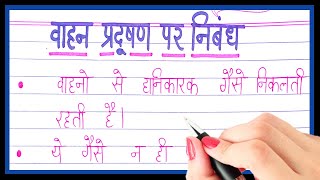 वाहन प्रदूषण पर निबंध
• वाहनो से हानिकारक गैसे निकलती
रहती है।
• ये गैसे न ही